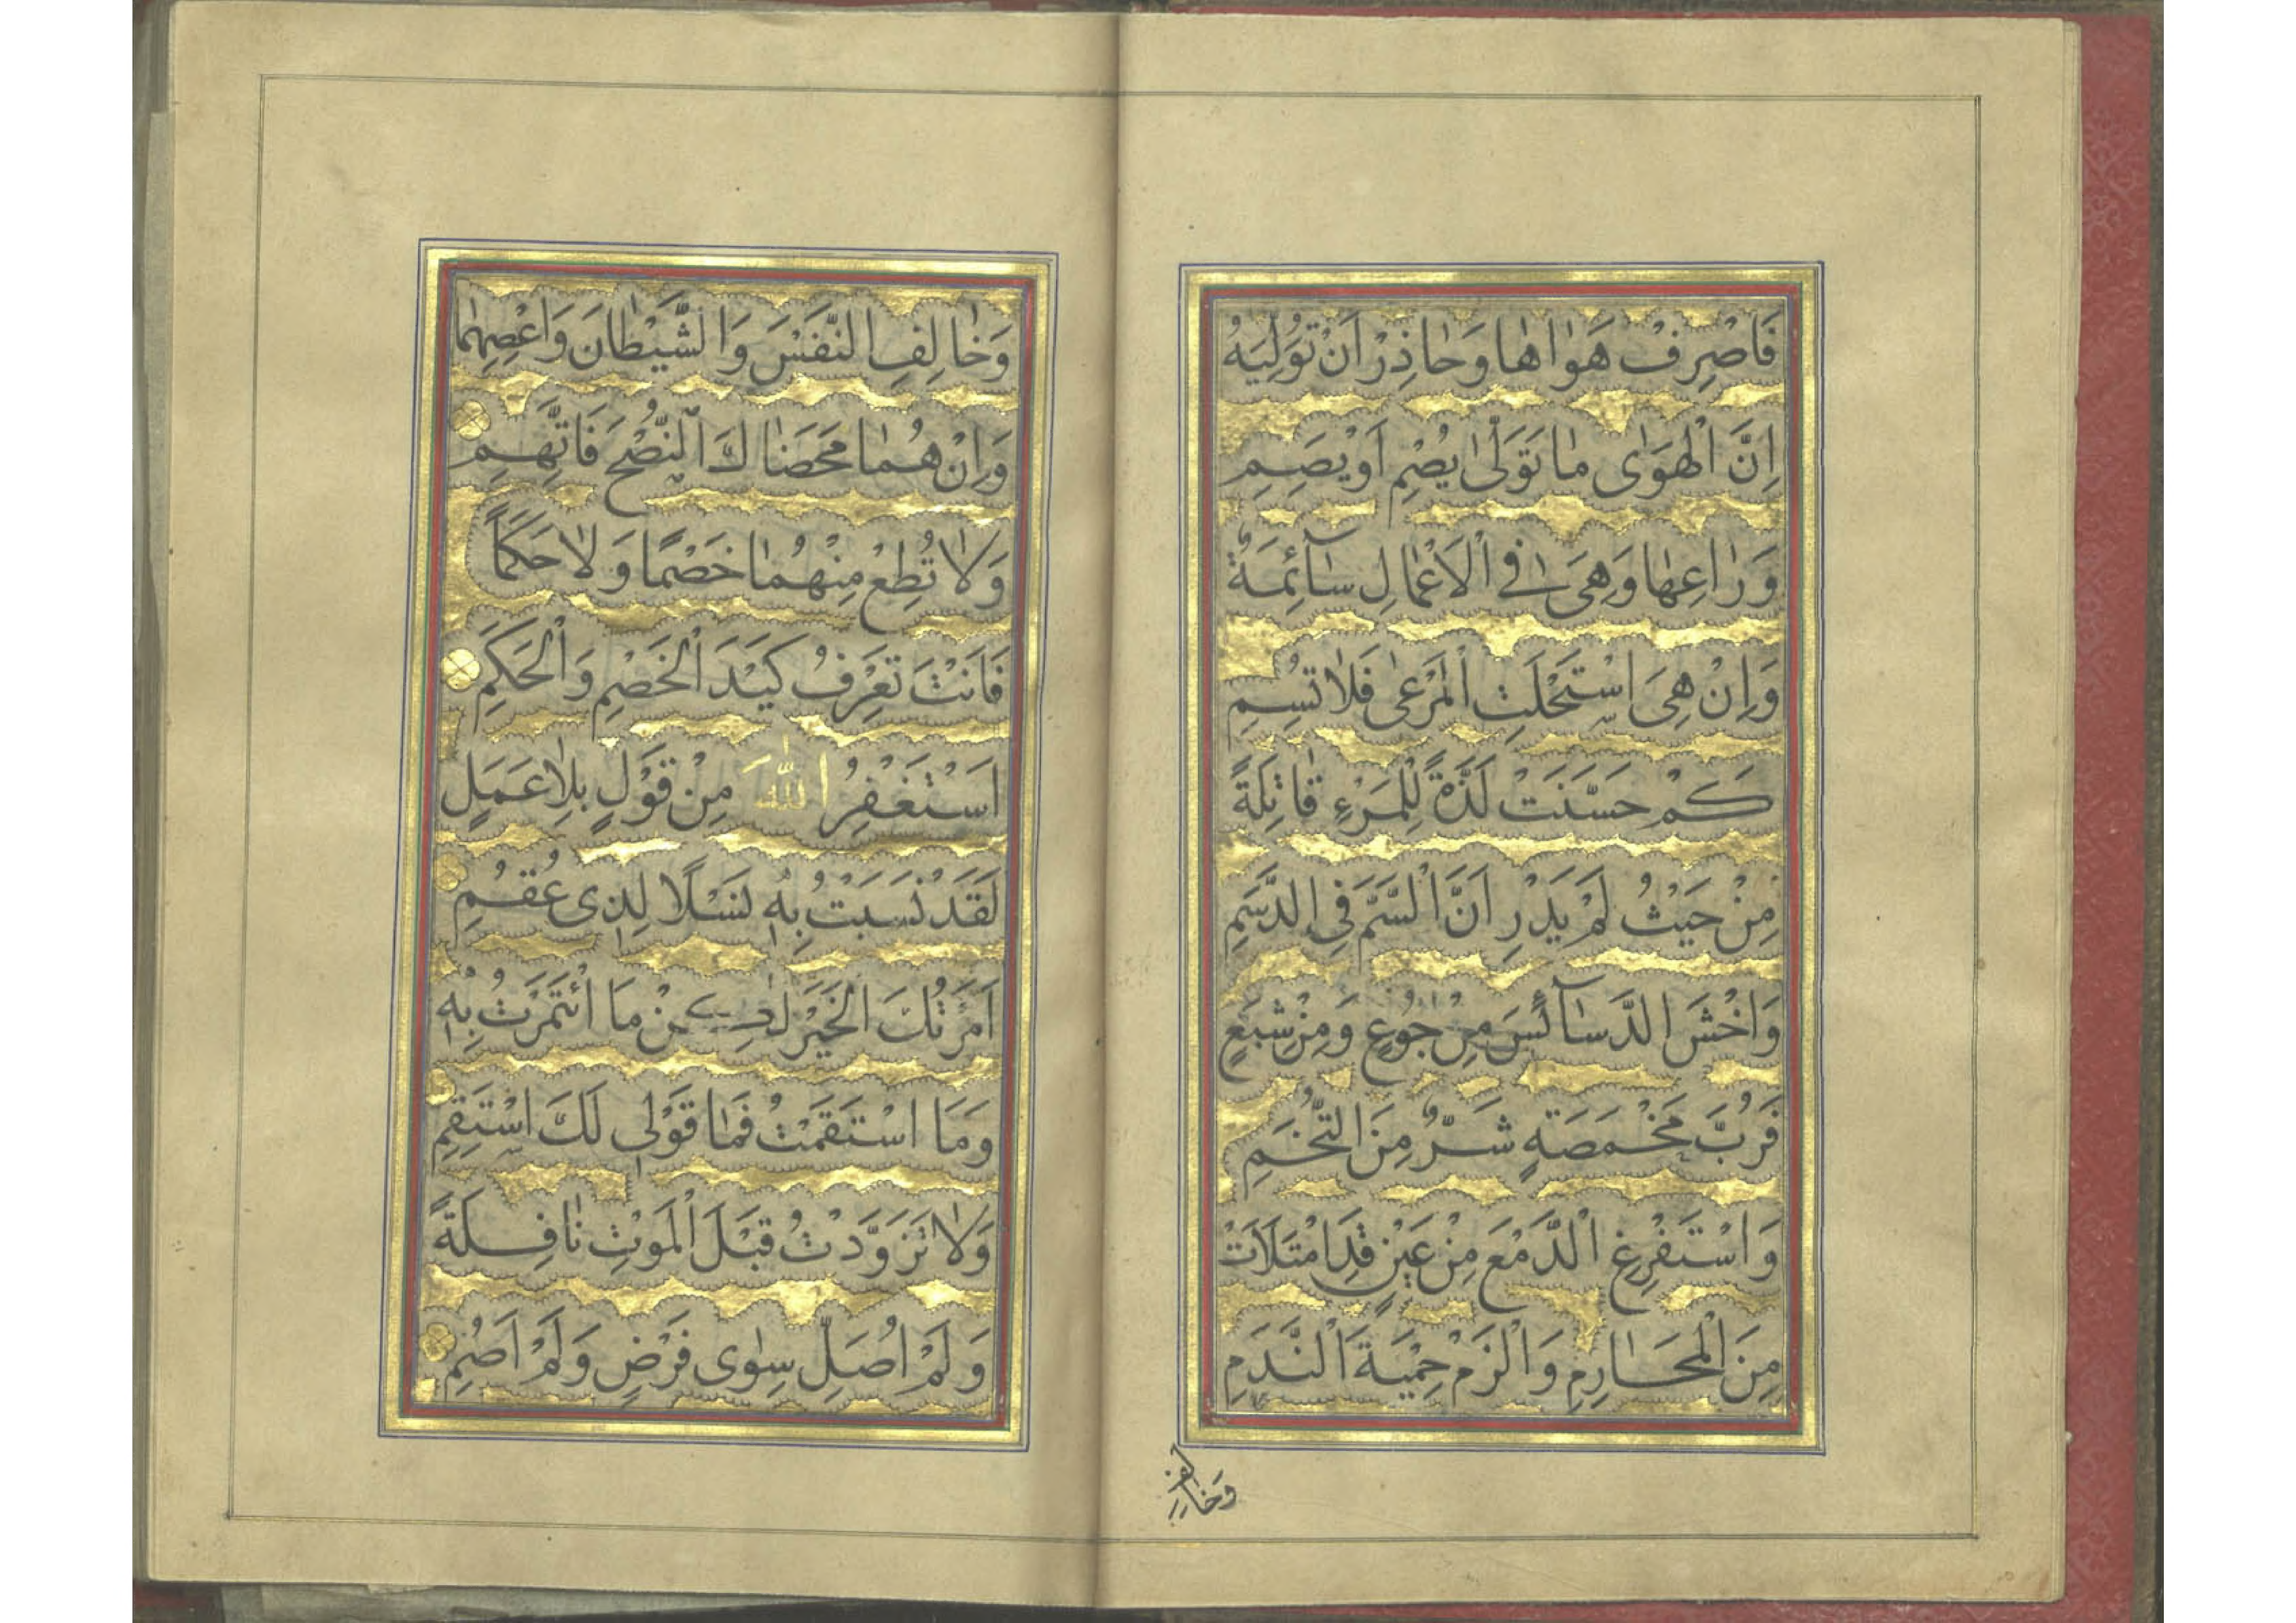 فَاصْرِفْ هَوٰاهٰا وَحٰاذِرْ اَنْ تُوَلِّيَهُ
اِنَّ الْهَوٰى مٰا تَوَلّٰى يُصْمِ اَوْ يَصِمِ
وَرٰاعِهٰا وَهِىَ فِى الْاَعْمٰالِ سٰآئِمَةٌ
وَاِنْ هِىَ اسْتَحْلَتِ الْمَرْعٰى فَلٰا تُسِمِ
كَمْ حَسَّنَتْ لَذَّةً لِلْمَرْءِ قٰاتِلَةً
مِنْ حَيْثُ لَمْ يَدْرِ اَنَّ السَّمَّ فِى الدَّسَمِ
وَاخْشَ الدَّسٰآئِسَ مِنْ جُوْعٍ وَمِنْ شَبَعٍ
فَرُبَّ مَخْمَصَةٍ شَرٌّ مِنَ التُّخَمِ
وَاسْتَفْرِغِ الدَّمْعَ مِنْ عَيْنٍ قَدِ امْتَلَاَتْ
مِنَ الْمَحٰارِمِ وَالْزَمْ حِمْيَةَ النَّدَمِ
وَخٰالِفِ
وَخٰالِفِ النَّفْسَ وَالشَّيْطٰانَ وَاعْصِهِمٰا
وَاِنْ هُمٰا مَحَضٰاكَ النُّصْحَ فَاتَّهِمِ
وَلٰا تُطِعْ مِنْهُمٰا خَصْمًا وَلٰا حَكَمًا
فَاَنْتَ تَعْرِفُ كَيْدَ الْخَصْمِ وَالْحَكَمِ
اَسْتَغْفِرُ اللّٰهَ مِنْ قَوْلٍ بِلٰا عَمَلٍ
لَقَدْ نَسَبْتُ بِهٖ نَسْلًا لِذِى عُقُمِ
اَمَرْتُكَ الْخَيْرَ لٰكِنْ مَا ائْتَمَرْتُ بِهٖ
وَمَا اسْتَقَمْتُ فَمٰا قَوْلِى لَكَ اسْتَقِمِ
وَلٰا تَزَوَّدْتُ قَبْلَ الْمَوْتِ نٰافِلَةً
وَلَمْ اُصَلِّ سِوٰى فَرْضٍ وَلَمْ اَصُمِ